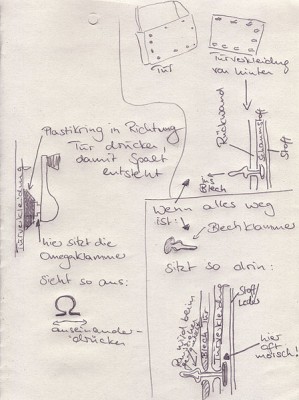 Tür
Türverkleidung
von hinten
Rückwand
Schaumstoff
Stoff
Tür
Blech
Plastikring in Richtung
Tür drücken,
damit Spalt
entsteht
Türverkleidung
hier sitzt die
Omegaklammer
Sieht so aus:
Ω
auseinander-
drücken
Wenn alles weg
ist:
Blechklammer
Sitzt so drin:
Blech Tür
Türverkleidung
Stoff
Leder
hier
oft
morsch!